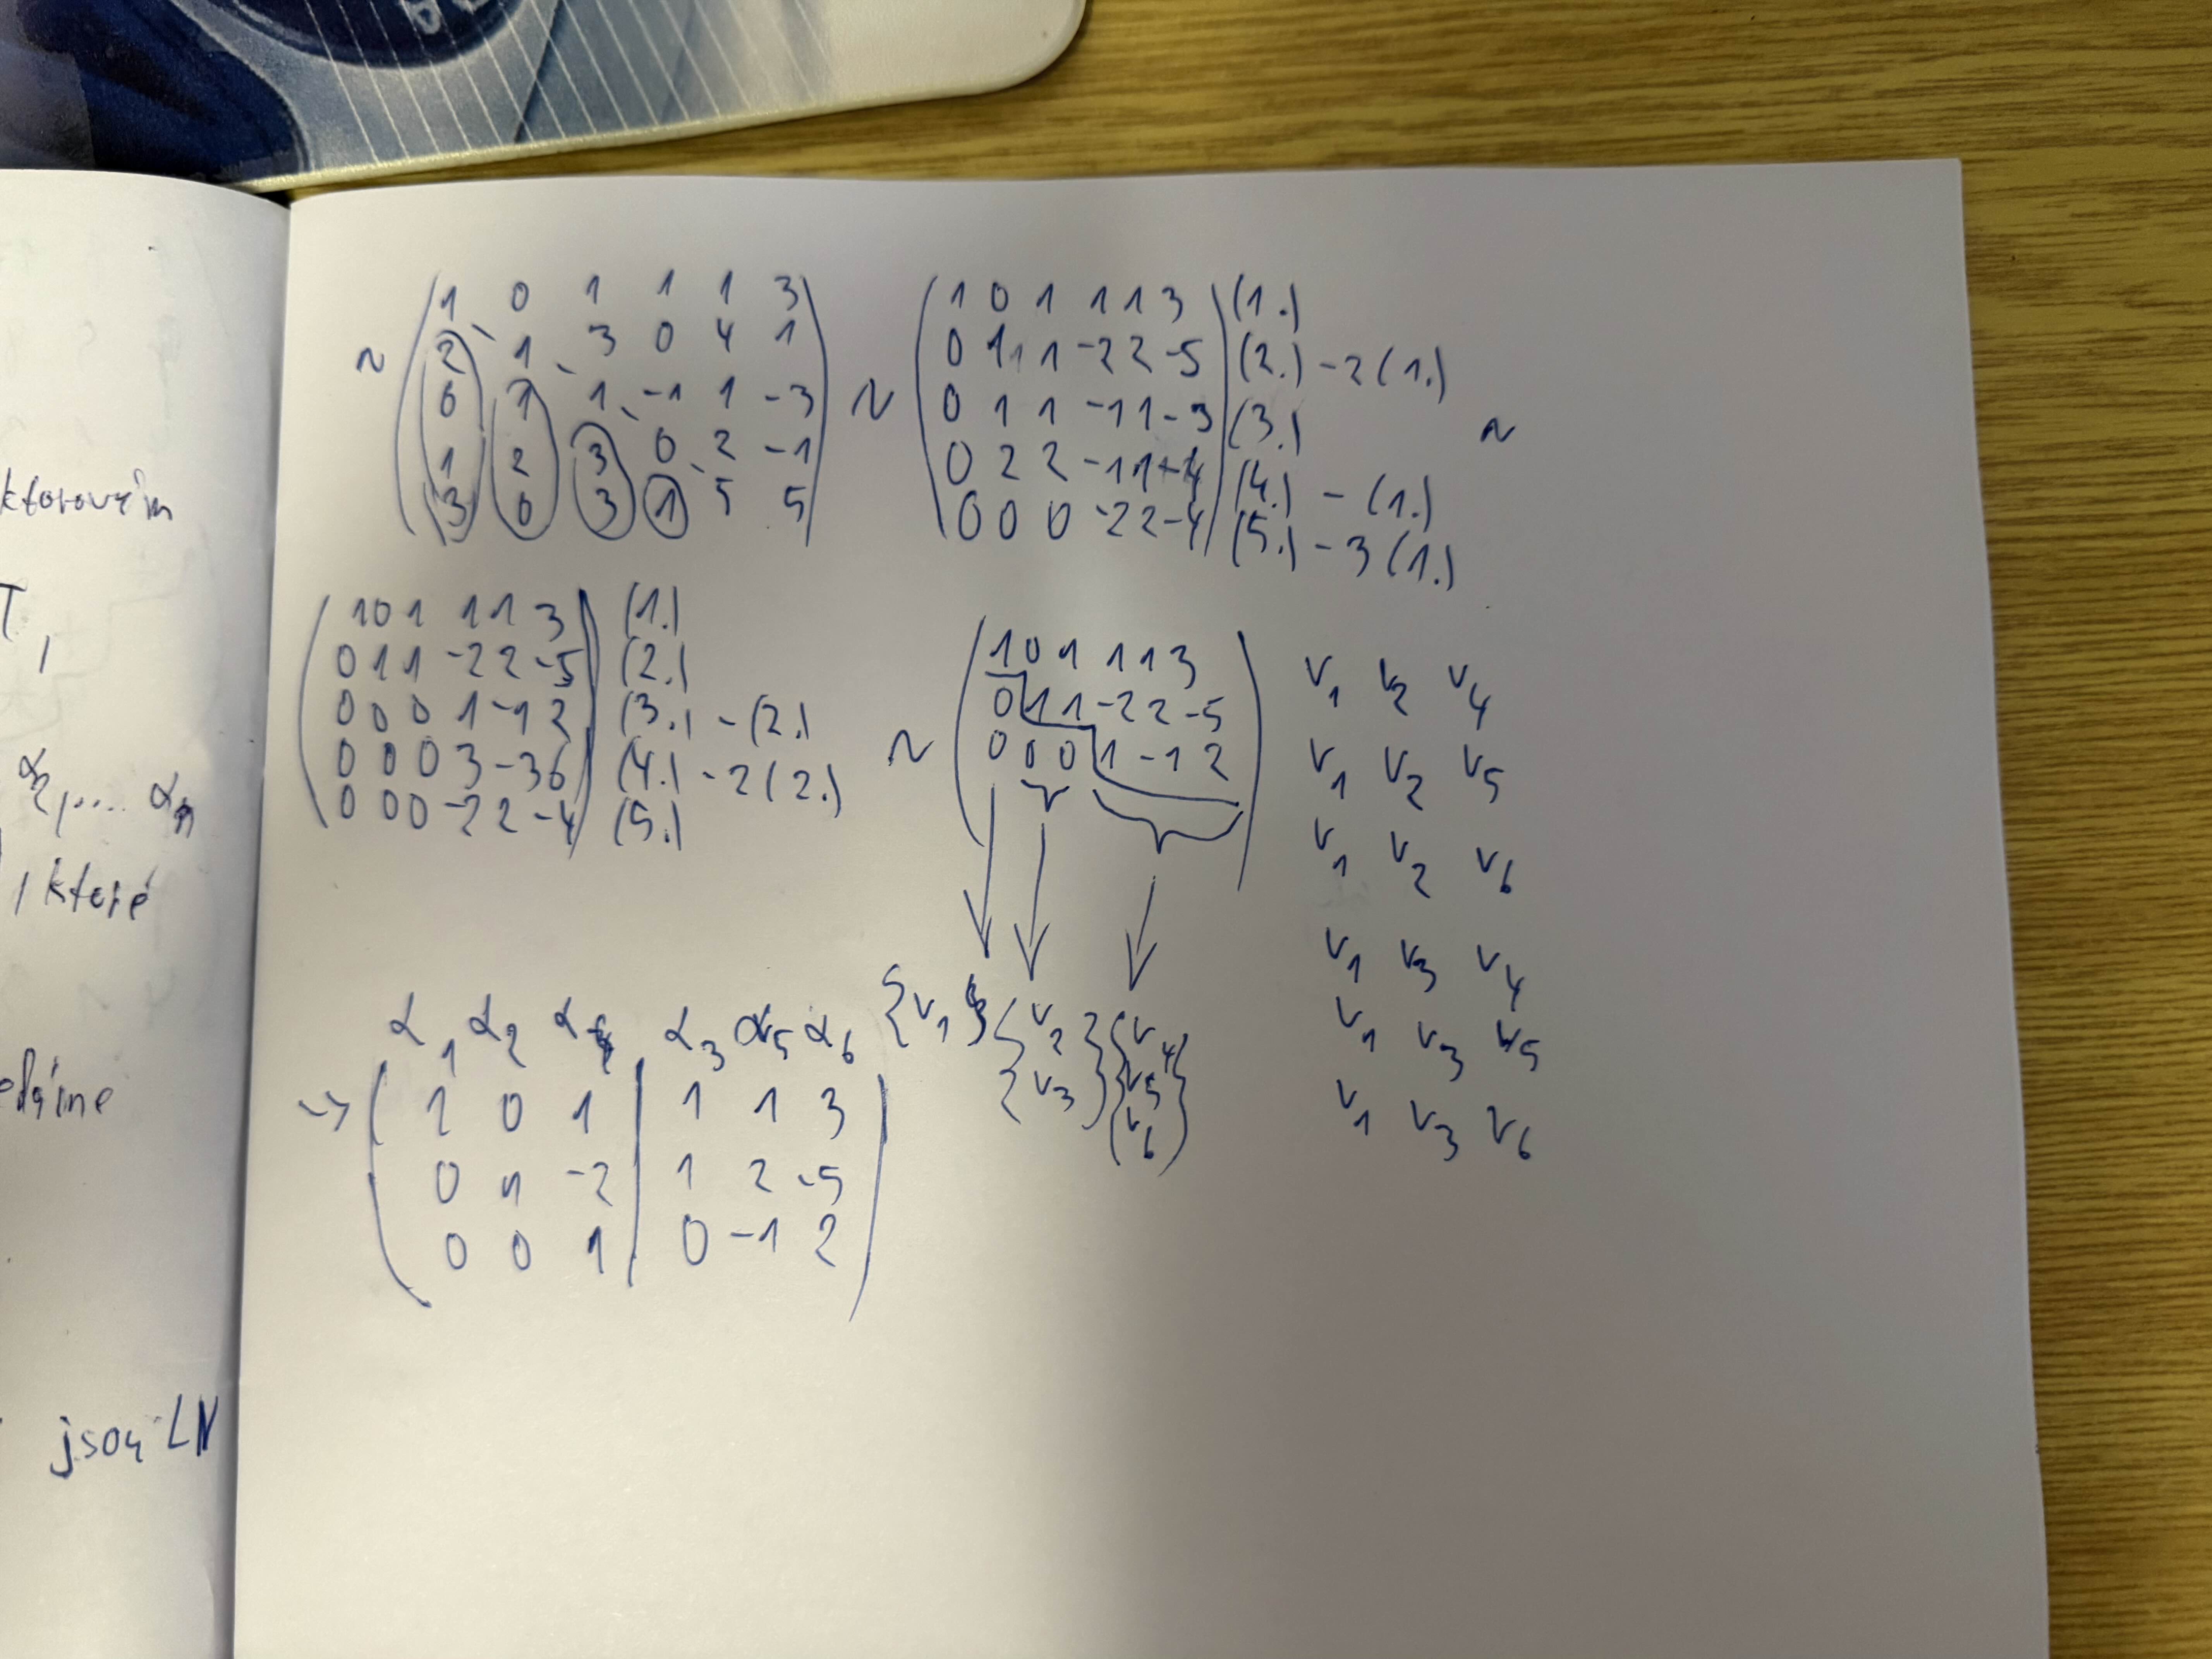 ktorovým
T,
α2,.... αn
, které
jsou LN
~ ( 1 0 1 1 1 3 )
2 1 3 0 4 1
0 1 1 -1 1 -3
1 2 3 0 2 -1
3 0 3 1 5 5
~ ( 1 0 1 1 1 3 ) (1.)
0 1 1 -2 2 -5 (2.) - 2(1.)
0 1 1 -1 1 -3 (3.) ~
0 2 2 -1 1 -4 (4.) - (1.)
0 0 0 -2 2 -4 (5.) - 3(1.)
( 1 0 1 1 1 3 ) (1.)
0 1 1 -2 2 -5 (2.)
0 0 0 1 -1 2 (3.) - (2.)
0 0 0 3 -3 6 (4.) - 2(2.)
0 0 0 -2 2 -4 (5.)
~ ( 1 0 1 1 1 3 )
0 1 1 -2 2 -5
0 0 0 1 -1 2
{v1} {v2 {v4
{v3} v5
v6}
v1 v2 v4
v1 v2 v5
v1 v2 v6
v1 v3 v4
v1 v3 v5
v1 v3 v6
α1 α2 α4 α3 α5 α6
→ ( 1 0 1 | 1 1 3 )
0 1 -2 | 1 2 -5
0 0 1 | 0 -1 2